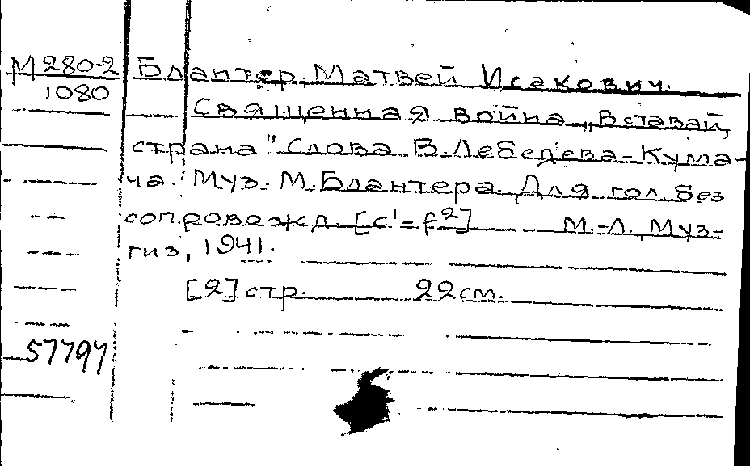 М 280-2 Блантер, Матвей Исакович.
1080 Священная война „Вставай,
страна" Слова В.Лебедева-Кума-
ча. Муз. М.Блантера. Для гол. без
сопровожд. [c¹-f²] М.-Л., Муз-
гиз, 1941.
[2] стр. 22 см.
57797